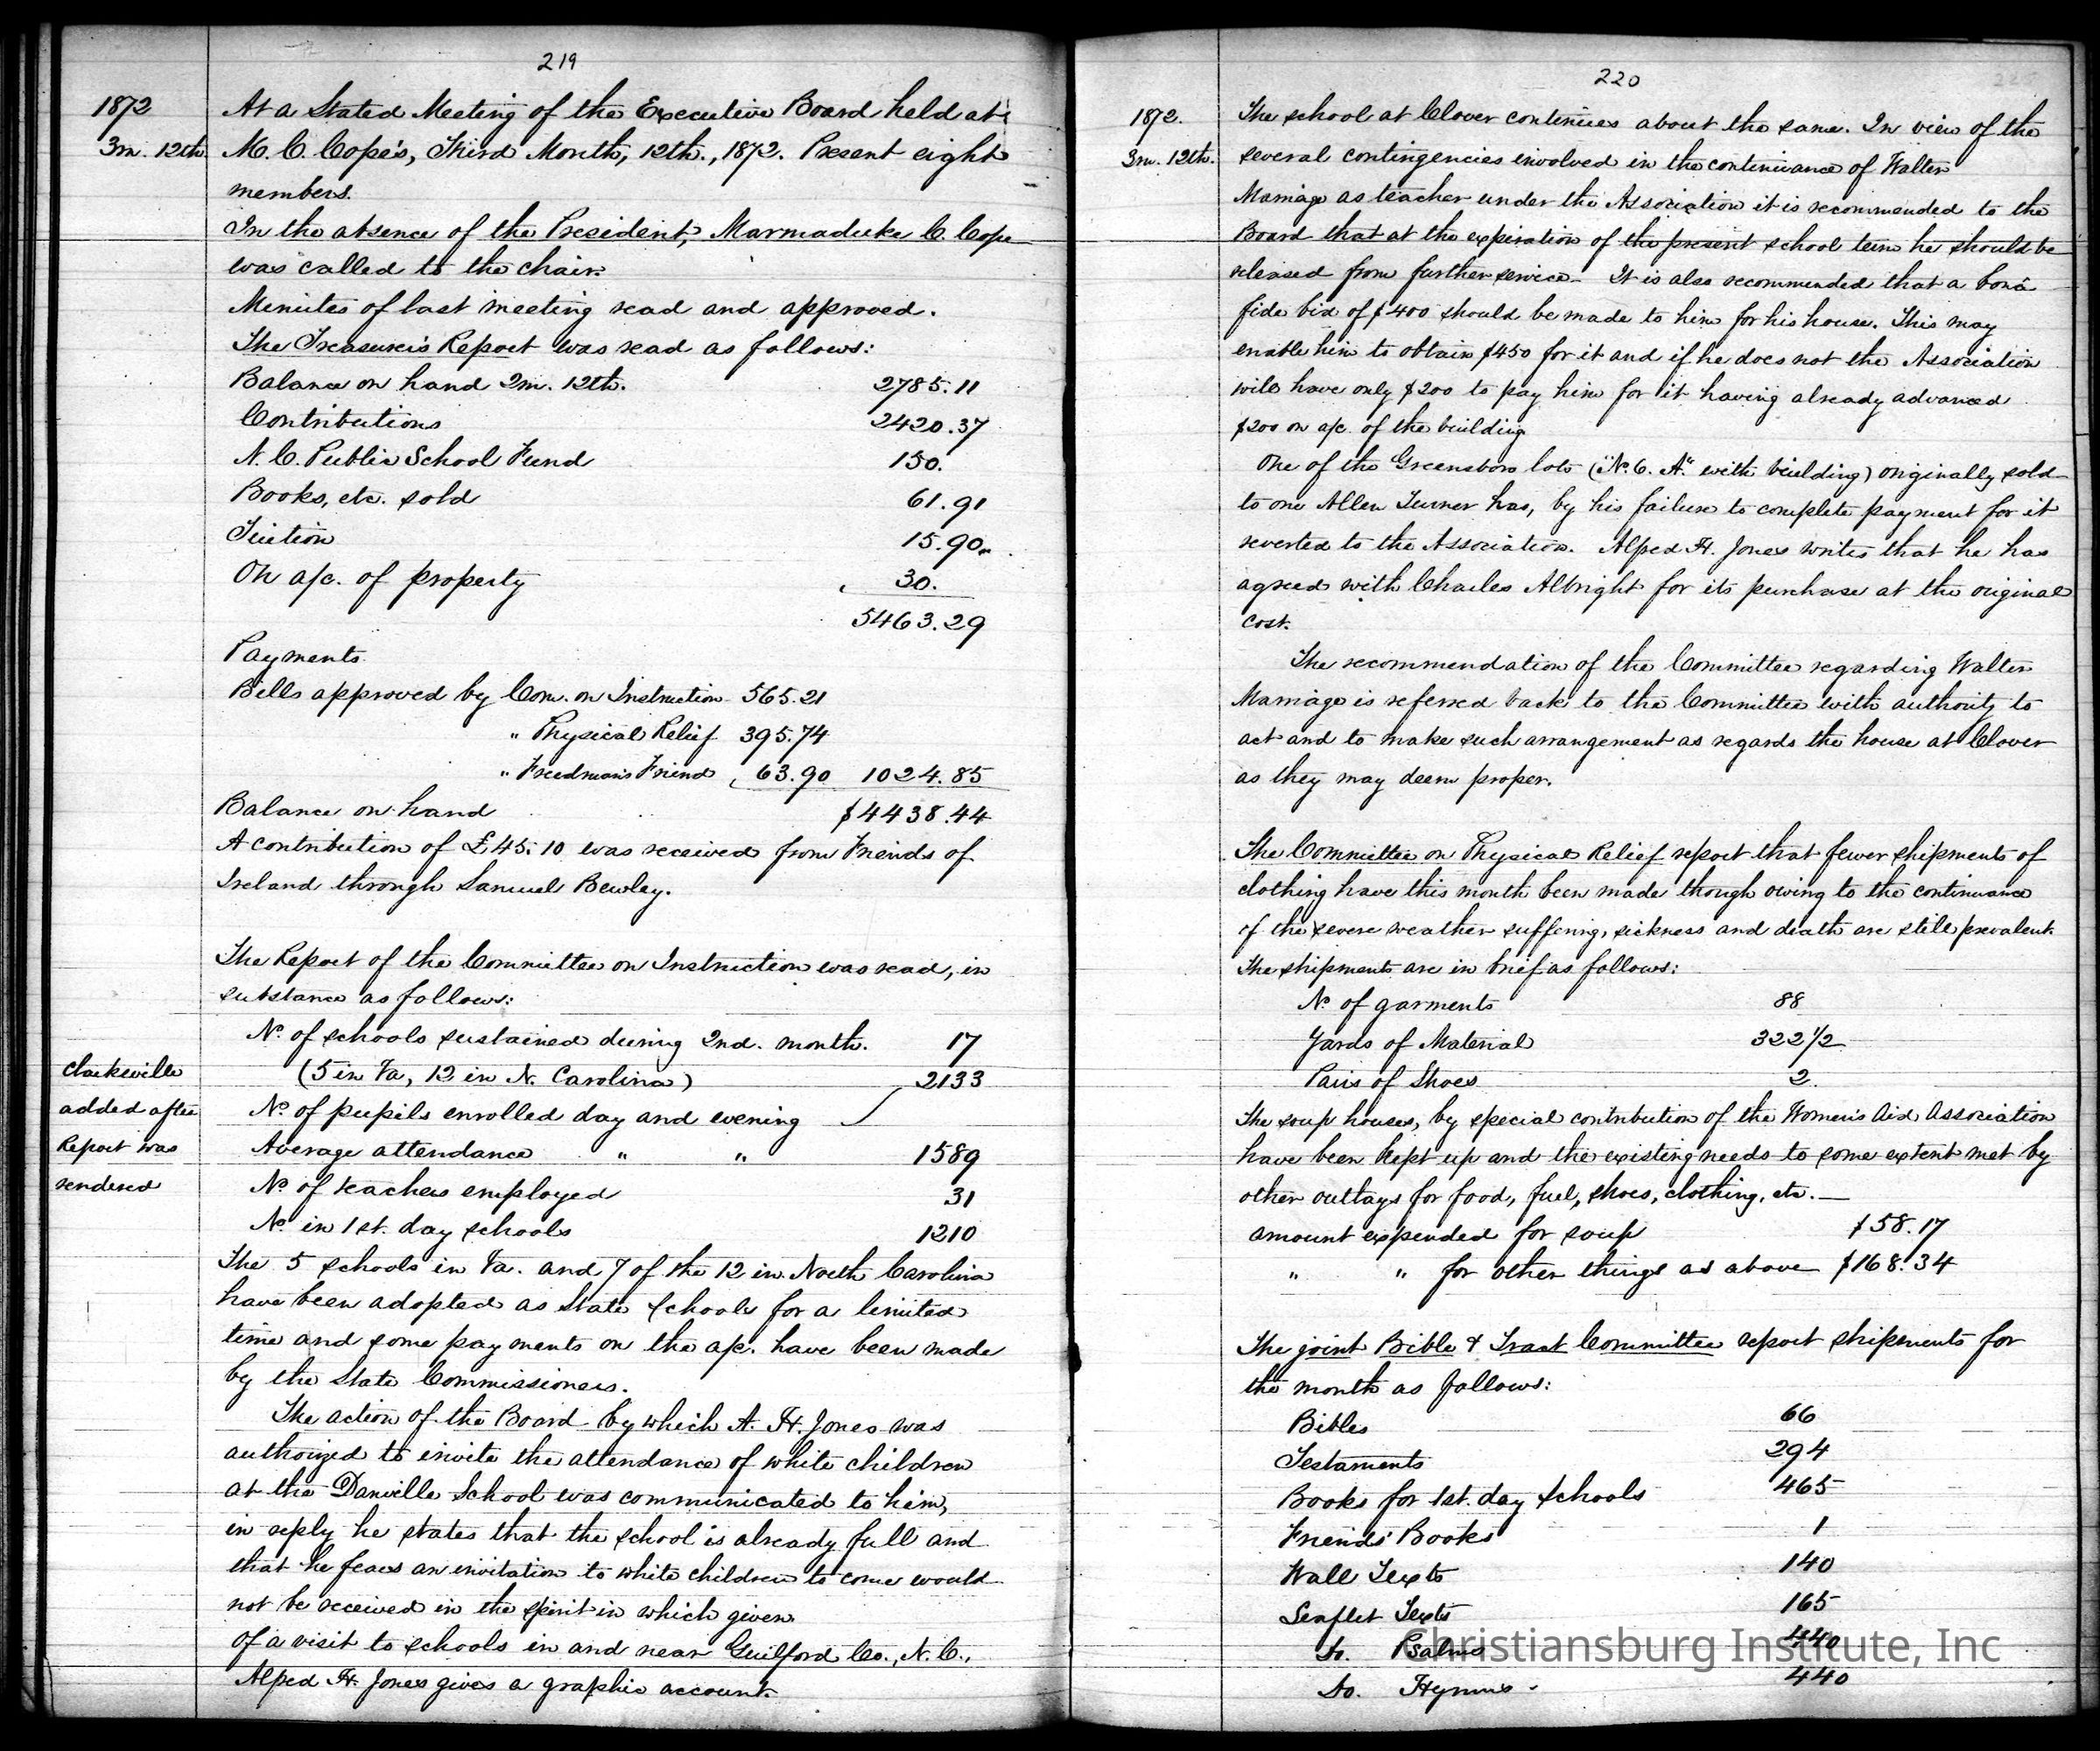 219
1872
3m. 12th.
At a Stated Meeting of the Executive Board held at
M. C. Cope's, Third Month, 12th., 1872. Present eight
members.
In the absence of the President, Marmaduke C. Cope
was called to the chair.
Minutes of last meeting read and approved.
The Treasurer's Report was read as follows:
Balance on hand 2m. 12th. 2785.11
Contributions 2420.37
N. C. Public School Fund 150.
Books, etc. sold 61.91
Tuition 15.90
On a/c. of property 30.
5463.29
Payments
Bills approved by Com. on Instruction 565.21
" Physical Relief 395.74
" Freedman's Friend 63.90 1024.85
Balance on hand $4438.44
A contribution of £45.10 was received from Friends of
Ireland through Samuel Bewley.
The Report of the Committee on Instruction was read, in
substance as follows:
No. of schools sustained during 2nd. month. 17
(5 in Va, 12 in N. Carolina) 2133
No. of pupils enrolled day and evening
Average attendance " " 1589
No. of teachers employed 31
No. in 1st. day schools 1210
Clarksville
added after
Report was
rendered
The 5 schools in Va. and 7 of the 12 in North Carolina
have been adopted as State schools for a limited
time and some payments on the a/c. have been made
by the State Commissioners.
The action of the Board by which A. H. Jones was
authorized to invite the attendance of white children
at the Danville School was communicated to him,
in reply he states that the school is already full and
that he fears an invitation to white children to come would
not be received in the spirit in which given
Of a visit to schools in and near Guilford Co., N. C.,
Alfred H. Jones gives a graphic account.
220
1872.
3m. 12th.
The school at Clover continues about the same. In view of the
several contingencies involved in the continuance of Walter
Marriage as teacher under the Association it is recommended to the
Board that at the expiration of the present school term he should be
released from further service. It is also recommended that a bonâ
fide bid of $400 should be made to him for his house. This may
enable him to obtain $450 for it and if he does not the Association
will have only $200 to pay him for it having already advanced
$200 on a/c. of the building
One of the Greensboro lots ("No. 6. A." with building) originally sold
to one Allen Turner has, by his failure to complete payment for it
reverted to the Association. Alfred H. Jones writes that he has
agreed with Charles Albright for its purchase at the original
cost.
The recommendation of the Committee regarding Walter
Marriage is referred back to the Committee with authority to
act and to make such arrangement as regards the house at Clover
as they may deem proper.
The Committee on Physical Relief report that fewer shipments of
clothing have this month been made though owing to the continuance
of the severe weather suffering, sickness and death are still prevalent
The shipments are in brief as follows:
No. of garments 88
Yards of Material 322 1/2
Pairs of Shoes 2.
The soup houses, by special contribution of the Women's Aid Association
have been kept up and the existing needs to some extent met by
other outlays for food, fuel, shoes, clothing, etc. —
amount expended for soup $58.17
" " for other things as above $168.34
The joint Bible & Tract Committee report shipments for
the month as follows:
Bibles 66
Testaments 294
Books for 1st. day schools 465
Friends' Books 1
Wall Texts 140
Leaflet Texts 165
Do. Psalms 440
Do. Hymns 440
Christiansburg Institute, Inc